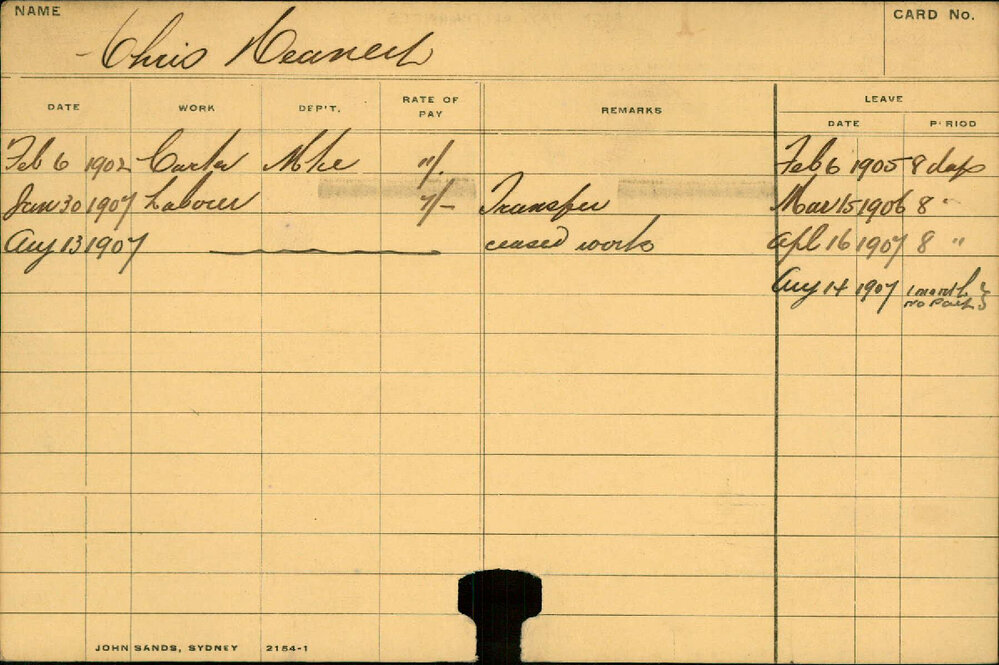 NAME
CARD No.
Chris
DATE WORK DEP'T. RATE OF PAY REMARKS LEAVE
DATE PERIOD
Feb 6 1902 Carter Mkt 11/. Feb 6 1905 8 days
Jan 30 1907 Laborer 7/- Transfer Mar 15 1906 8 "
Aug 13 1907 ceased work Apl 16 1907 8 "
Aug 14 1907 1 month
no pay
JOHN SANDS, SYDNEY 2154-1